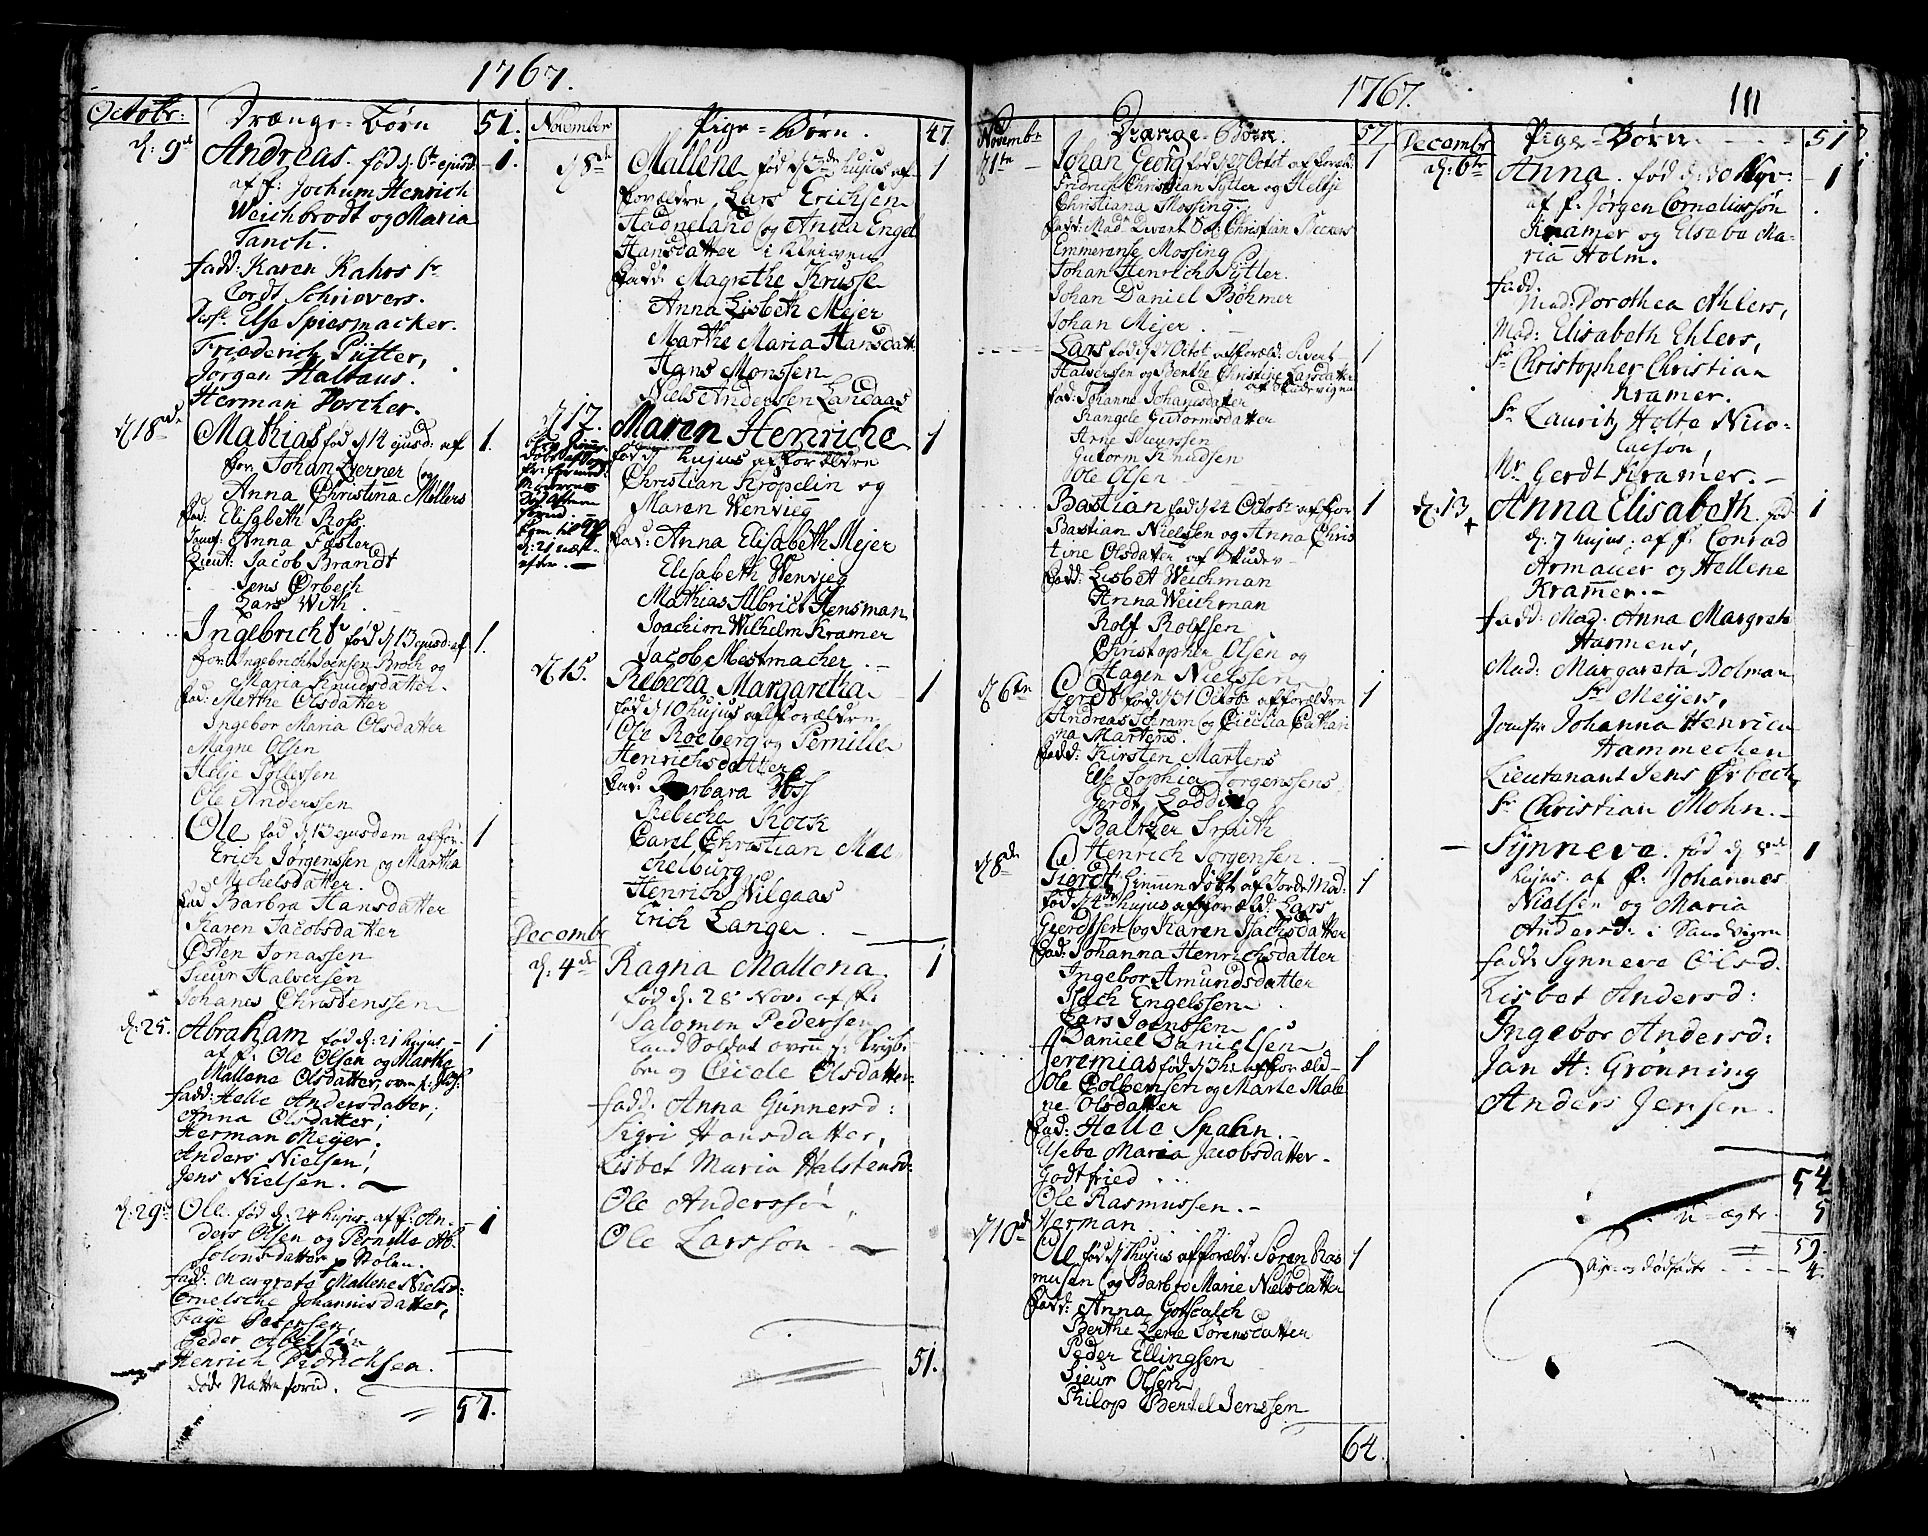 1767.
Octobr:
Drænge-Børn
51.
d: 9de
Andreas. fød d. 6te ejusd
1.
af f: Jochum Henrich
Weichbrodt og Maria
Tanch.
fadd: Karen Kahrs Sr
Cordt Schriovers.
Jfr. Else Spiesmacker.
Friderich Pütter,
Jörgen Haltaus.
Herman Poscher.
d 18de
Mathias fød d 14 ejusd: af
1.
for. Johan Werner og
Anna Christina Møllers
fad: Elisabeth Ross.
Jomf: Anna Faster
Lieut: Jacob Brandt
Jens Ørbech
Lars With
Ingebricht fød d 13 ejusd: af
1.
for: Ingebricht Joensen Broch og
Maria Knudsdatter.
fad: Merthe Olsdatter
Ingebor Maria Olsdatter
Magne Olsen
Helje Tollessen
Ole Anderssen
Ole fød d 13 ejusdem af for:
1
Erich Jørgenssen og Martha
Michelsdatter.
fad Barbra Hansdatter
Karen Jacobsdatter
Østen Jonassen
Siur Halversen
Johanes Christenssen
d: 25.
Abraham fød d: 21 hujus,
1
af f: Ole Olsen og Marthe
Mallene Olsdatter,
fadd: Helle Andersdatter,
Anna Olsdatter,
Herman Meyer.
Anders Nielsen,
Jens Nielsen.
d: 29de
Ole. fød d. 24 hujus. af f: An-
1
ders Olsen og Pernille Ab-
solonsdatter p Nølen.
fadd: Margrete Mallene Nielsd:
Cornelsche Johannisdatter,
Faye Petersen,
Peder Abelsøn
Henrich Didrichsen.
døde Natten forud.
57.
November
Pige-Børn.
47
d 8de
Mallene fød d 3de hujus af
1
forældre, Lars Erichsen
Hadneland og Anna Engel
Hansdatter i Kleiven
fadd: Magrethe Krusse
Anna Lisbeth Mejer
Marthe Maria Hansdatt
Hans Monssen
Niels Anderssen Landaas
d 17.
Maren Henriche
1
fød d hujus af forældre
Christian Kröpelin og
Maren Wenvieg
fad: Anna Elisabeth Mejer
Elisabeth Wenvieg
Mathias Albrict Hensman
Joachim Wilhelm Kramer
Jacob Mestmacher.
d 15.
Rebecka Margaretha
1
fød d 10 hujus af forældre
Ole Roeberg og Pernille
Henrichsdatter
fad: Barbara Voss
Rebecha Kock
Carel Christian Mec-
chelburg
Henrich Vilgaas
Erich Lange.
Decembr
d. 4de
Ragna Mallena.
1
fød d. 28 Nov. af f.
Salomon Pedersen
Land Soldat
og Cicele Olsdatter
fadd: Anna Gunnersd:
Sigri Hansdatter,
Lisbet Maria Halstensd:
Ole Anderssøn
Ole Larssøn.
51.
1767.
111
Novembr
Drænge-Børn.
57
d 1te
Johan Georg fød d 27 Octobr af foræld:
1
Fridrich Christian Pütter og Heltje
Christiana Mossing.
fadd: Mad. Divert Sal: Christian Pieters
Emmerense Mossing
Johan Henrich Pütter.
Johan Daniel Böhmer
Johan Mejer.
Lars fød d 27 Octobr af foræld: Sivert
1
Halversen og Berthe Christine Larsdatter
af Sandevigen
fad: Johanne Johansdatter
Rangele Guttormsdatter
Arne Siurssen
Gutorm Knudsen
Ole Olsen
Bastian fød d 24 Octobr af for
1
Bastian Nielsen og Anna Chris
tine Olsdatter
fadd: Lisbet Weichman
Anna Weichman
Rolf Rolfsen
Christopher Olsen og
Hagen Nielssen
d 6te
Gerdt fød d 31 Octobr af forældre
1
Andreas Schram og Cicilia Cathari
na Martens.
fadd: Kirsten Martens
Else Sophia Jørgenssens
Gerdt Ladding
Baltzer Smith
Henrich Jørgensen.
d 8de
Gierdt hjemme døbt af Jorde Mod:
1
fød d 4de hujus af foræld: Lars
Gierdtsen og Karen Isachsdatter
fad: Johanna Henrichsdatter
Ingebor Amundsdatter
Isach Engelssen
Lars Joenssen
Daniel Danielsen
Jeremias fød d 3 h: af foræld
1
Ole Colbensen og Marte Male
ne Olsdatter
fad: Helle Spahn.
Elsebe Maria Jacobsdatter
Godtfried ...
Ole Rasmussen.
Herman
d 10de
Ole fød d 7 hujus af foræld: Søren Ras
1
musen og Barbro Marie Nielsdatter
fadd: Anna Gotscalch
Berthe Lene Sørensdatter
Peder Ellingsen
Siour Olsen
Philop Bertel Jenssen
64.
Decembr
Pige-Børn.
51
d. 6te
Anna. fød d: 30 Nov.
1
af f: Jørgen Corneliussøn
Kramer og Elsabe Ma-
ria Holm.
fadd.
Mad: Dorothea Ahlers,
Mad: Elisabeth Ehlers,
Sr Christopher Christian
Kramer.
Sr Lauritz Holte Nico-
laisøn,
Mr. Gerdt Kramer.
d. 13
Anna Elisabeth. fød
1
d. 7 hujus. af f: Conrad
Armauer og Hellene
Kramer.
fadd: Mad. Anna Margreta
Harmens,
Mad: Margareta Dolman
Sr Meyers,
Jomfr Johanna Henrica
Hammechen
Lieutenant Jens Ørbech,
Sr Christian Mohn.
Synneve. fød d 8de
1
hujus. af f. Johannes
Nielsen og Maria
Andersd: i Sandvigen
fadd: Synneve Olsd.
Lisbet Andersd:
Ingebor Andersd:
Jan H: Grønning
Anders Jensen.
54
u-ægte.
5
59.
4.